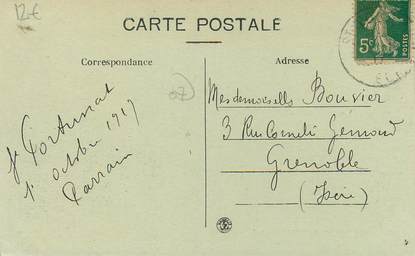 12€
CARTE POSTALE
Correspondance
Adresse
07
5c
POSTES
St Fortunat
1er octobre 1917
Parrain
Mesdemoiselles Bouvier
3 Rue Cornélie Gémond
Grenoble
(Isère)